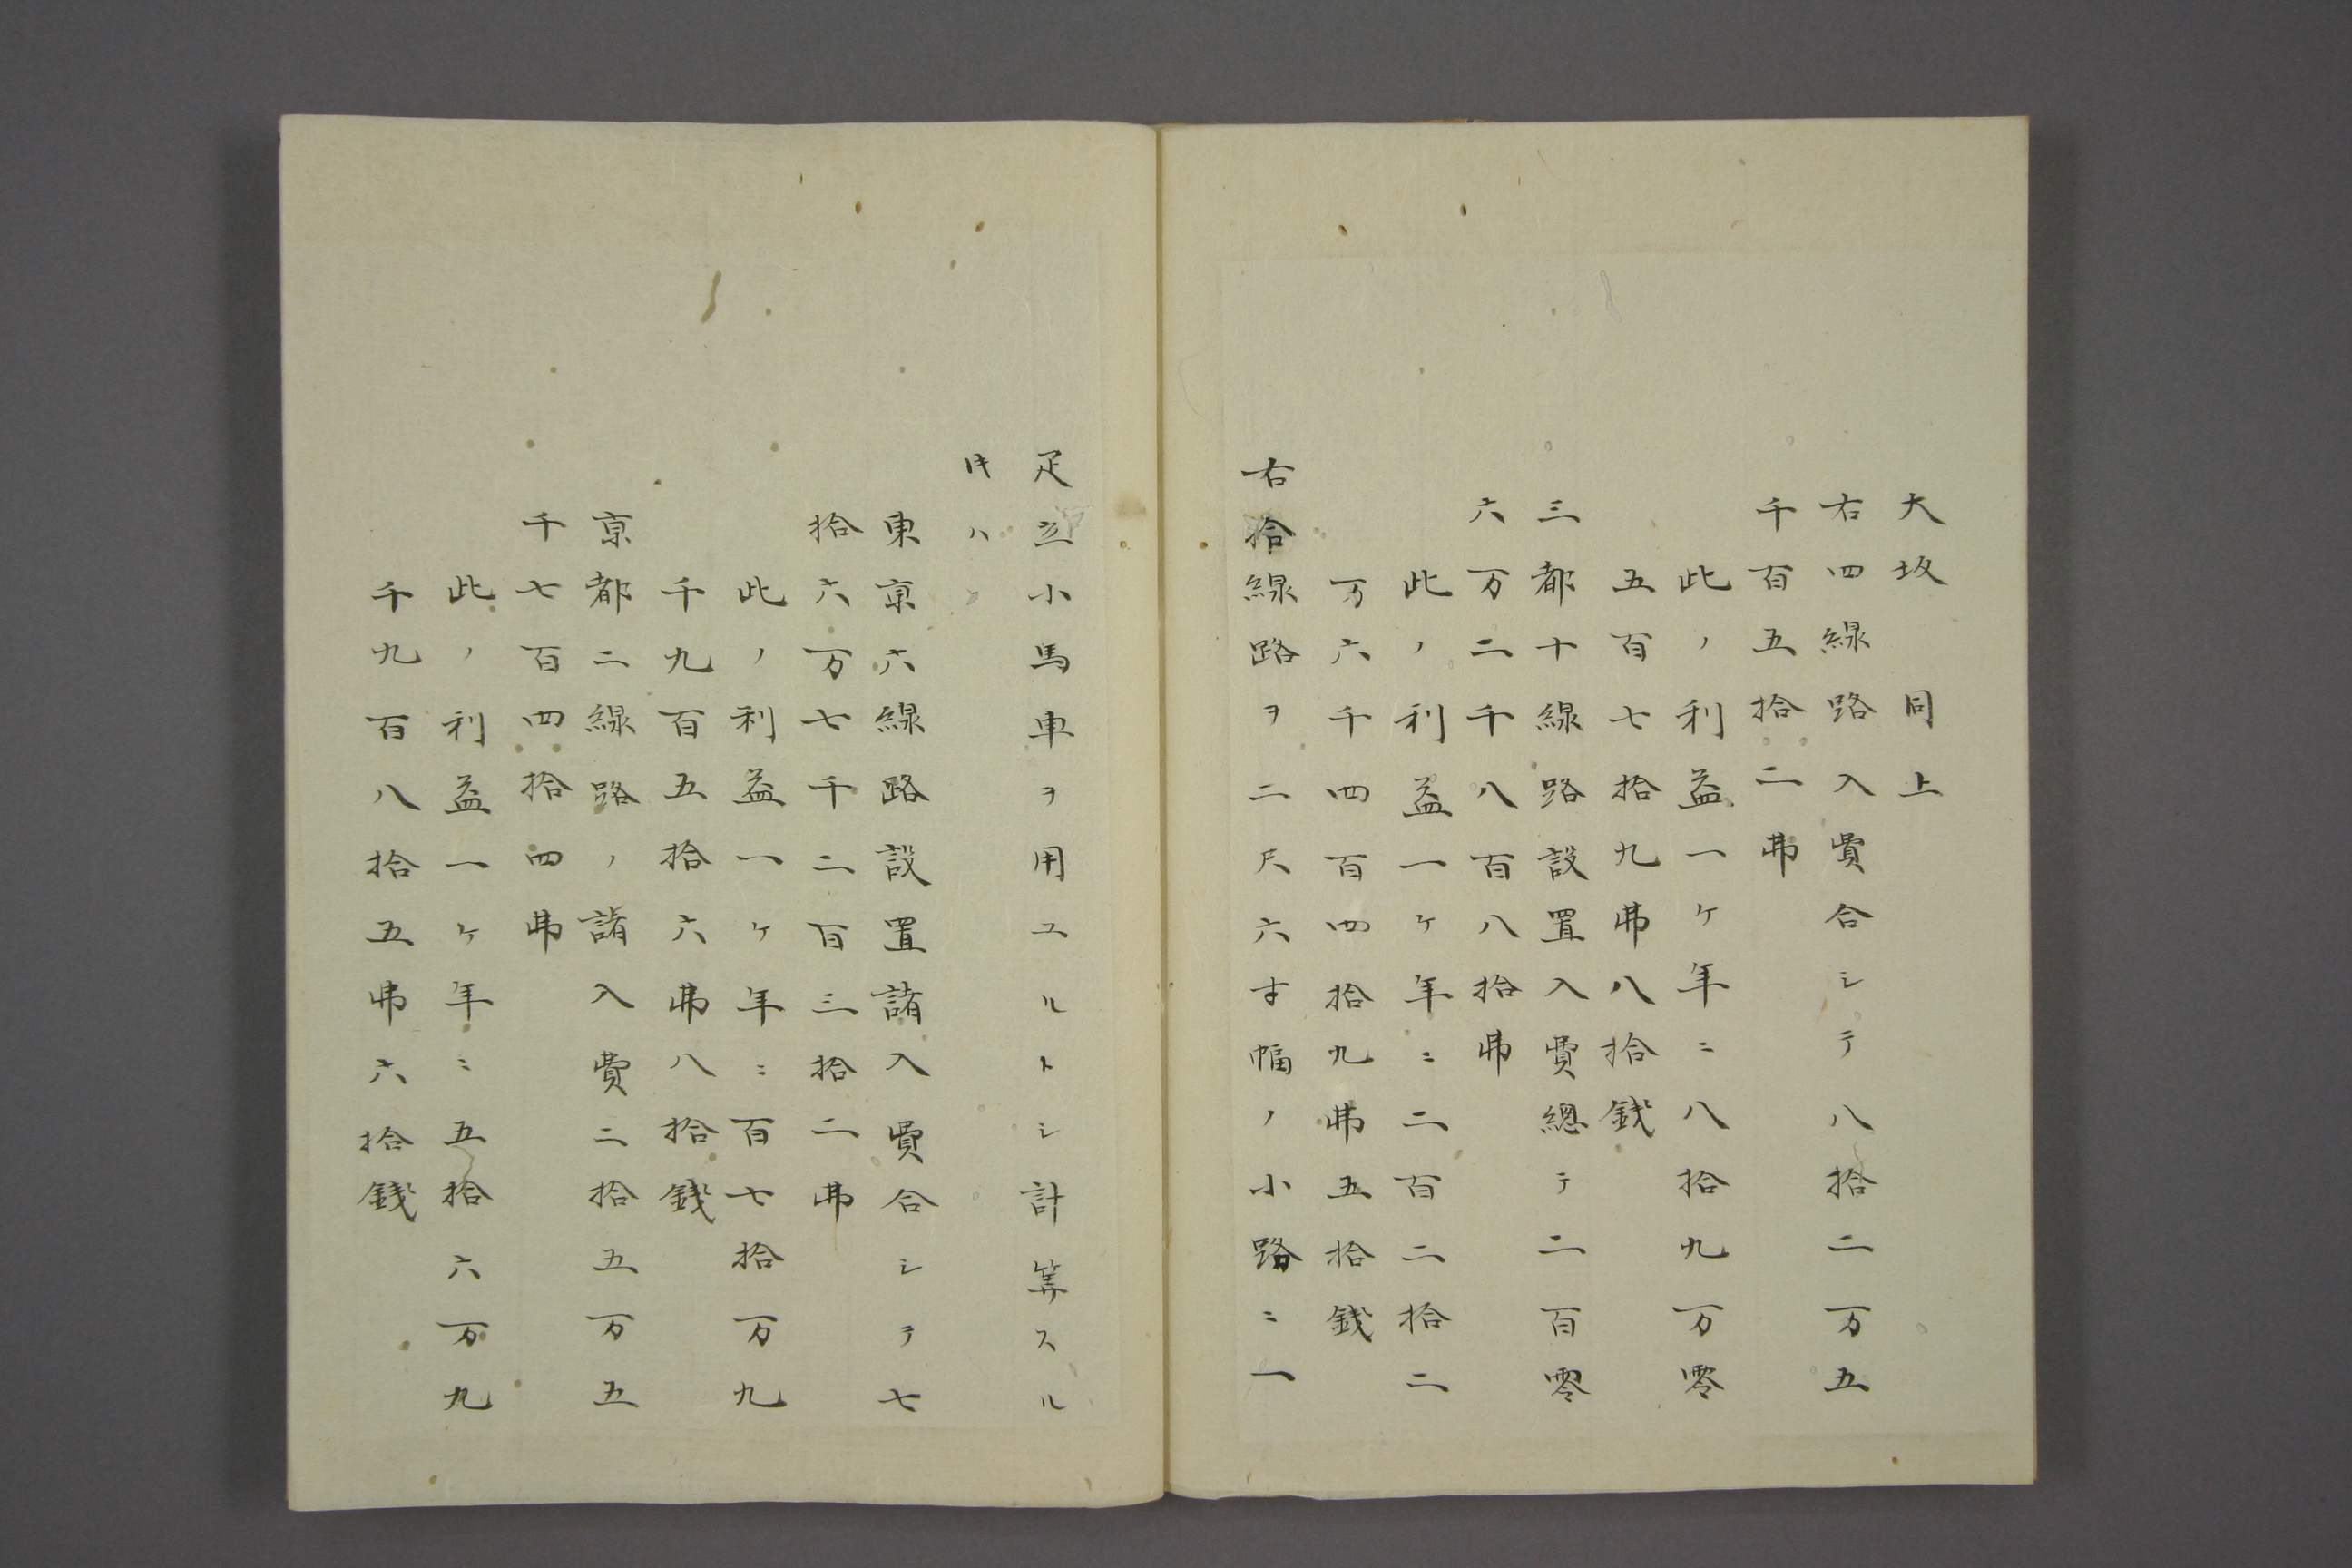 大坂　同上
右四線路入費合シテ八拾二万五
千百五拾二弗
此ノ利益一ヶ年ニ八拾九万零
五百七拾九弗八拾銭
三都十線路設置入費總テ二百零
六万二千八百八拾弗
此ノ利益一ヶ年ニ二百二拾二
万六千四百四拾九弗五拾銭
右拾線路ヲ二尺六寸幅ノ小路ニ一
疋立小馬車ヲ用ユルトシ計筭スル
𪜈ハ
東京六線路設置諸入費合シテ七
拾六万七千二百三拾二弗
此ノ利益一ヶ年ニ百七拾万九
千九百五拾六弗八拾銭
京都二線路ノ諸入費二拾五万五
千七百四拾四弗
此ノ利益一ヶ年ニ五拾六万九
千九百八拾五弗六拾銭